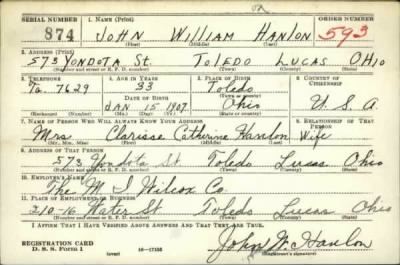 SERIAL NUMBER 1. NAME (Print) ORDER NUMBER
874 JOHN WILLIAM HANLON 593
(First) (Middle) (Last)
2. ADDRESS (Print)
573 YONDOTA St. TOLEDO LUCAS OHIO
(Number and street or R. F. D. number) (Town) (County) (State)
3. TELEPHONE 4. AGE IN YEARS 5. PLACE OF BIRTH 6. COUNTRY OF CITIZENSHIP
Ta. 7629 33 Toledo
DATE OF BIRTH (Town or county)
JAN 15 1907 Ohio U. S. A.
(Exchange) (Number) (Mo.) (Day) (Yr.) (State or country)
7. NAME OF PERSON WHO WILL ALWAYS KNOW YOUR ADDRESS 8. RELATIONSHIP OF THAT PERSON
Mrs Clarisse Catherine Hanlon Wife
(Mr., Mrs., Miss) (First) (Middle) (Last)
9. ADDRESS OF THAT PERSON
573 Yondota St Toledo Lucas Ohio
(Number and street or R. F. D. number) (Town) (County) (State)
10. EMPLOYER'S NAME
The M I Wilcox Co.
11. PLACE OF EMPLOYMENT OR BUSINESS
210-16 Water St Toledo Lucas Ohio
(Number and street or R. F. D. number) (Town) (County) (State)
I AFFIRM THAT I HAVE VERIFIED ABOVE ANSWERS AND THAT THEY ARE TRUE.
REGISTRATION CARD
D. S. S. FORM 1 (over) 16—17105 John W. Hanlon
(Registrant's signature)